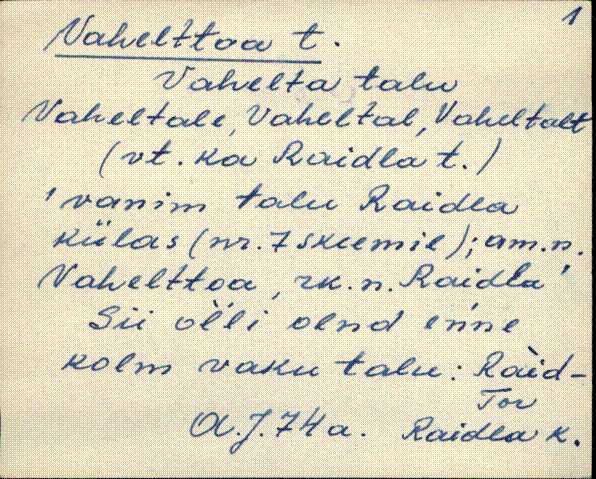 1
Vahelttoa t.
Vahelta talu
Vaheltale, Vaheltal, Vaheltalt
(vt. ka Raidla t.)
'vanim talu Raidla
külas (nr. 7 skeemil); am.n.
Vahelttoa, rk.n. Raidla'
Sii òlli olnd enne
kolm vaku talu: Ràid-
Tor
A.J. 74 a. Raidla k.